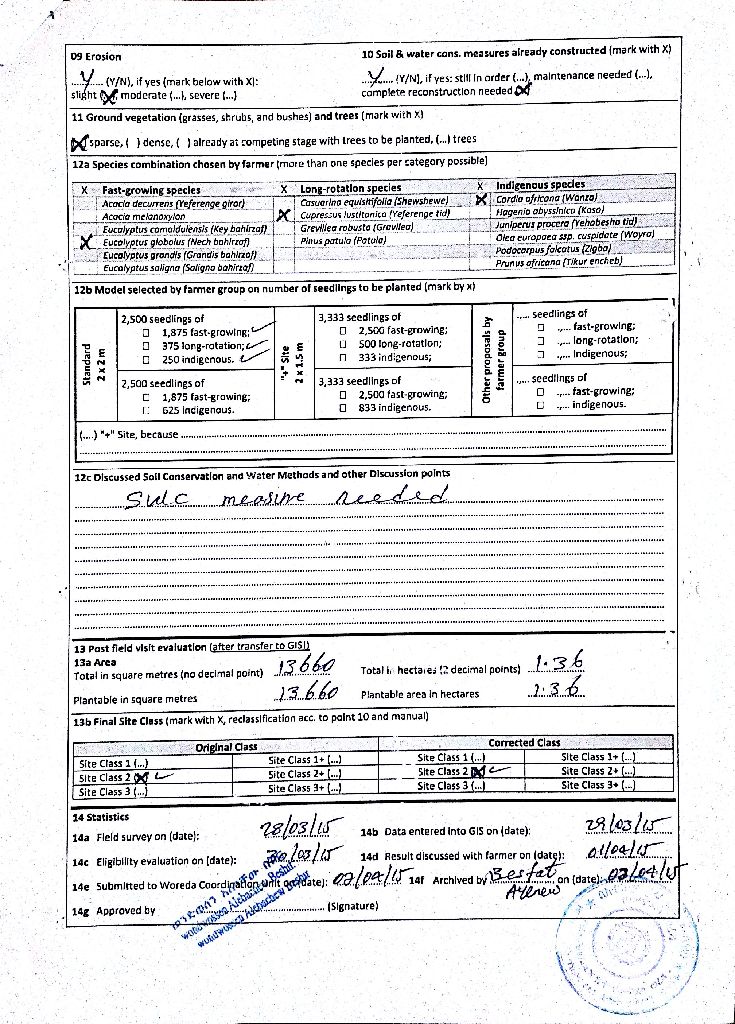 09 Erosion
Y (Y/N), if yes (mark below with X):
slight (X), moderate (...), severe (...)
10 Soil & water cons. measures already constructed (mark with X)
Y (Y/N), if yes: still in order (...), maintenance needed (...),
complete reconstruction needed (X)
11 Ground vegetation (grasses, shrubs, and bushes) and trees (mark with X)
(X) sparse, ( ) dense, ( ) already at competing stage with trees to be planted, (...) trees
12a Species combination chosen by farmer (more than one species per category possible)
X Fast-growing species X Long-rotation species X Indigenous species
Acacia decurrens (Yeferenge girar) Casuarina equisitifolia (Shewshewe) X Cordia africana (Wanza)
Acacia melanoxylon X Cupressus lustitanica (Yeferenge tid) Hagenia abyssinica (Koso)
Eucalyptus camaldulensis (Key bahirzaf) Grevillea robusta (Gravilea) Juniperus procera (Yehabesha tid)
X Eucalyptus globolus (Nech bahirzaf) Pinus patula (Patula) Olea europaea ssp. cuspidate (Wayra)
Eucalyptus grandis (Grandis bahirzaf) Podocarpus falcatus (Zigba)
Eucalyptus saligna (Saligna bahirzaf) Prunus africana (Tikur encheb)
12b Model selected by farmer group on number of seedlings to be planted (mark by x)
Standard
2 x 2 m
2,500 seedlings of
☐ 1,875 fast-growing; ✓
☐ 375 long-rotation; ✓
☐ 250 indigenous. ✓
2,500 seedlings of
☐ 1,875 fast-growing;
☐ 625 indigenous.
"+" Site
2 x 1.5 m
3,333 seedlings of
☐ 2,500 fast-growing;
☐ 500 long-rotation;
☐ 333 indigenous;
3,333 seedlings of
☐ 2,500 fast-growing;
☐ 833 indigenous.
Other proposals by
farmer group
..... seedlings of
☐ ..... fast-growing;
☐ ..... long-rotation;
☐ ..... indigenous;
..... seedlings of
☐ ..... fast-growing;
☐ ..... indigenous.
(....) "+" Site, because
12c Discussed Soil Conservation and Water Methods and other Discussion points
SWC measure needed
13 Post field visit evaluation (after transfer to GIS!)
13a Area
Total in square metres (no decimal point) 13660 Total in hectares (2 decimal points) 1.36
Plantable in square metres 13660 Plantable area in hectares 1.36
13b Final Site Class (mark with X, reclassification acc. to point 10 and manual)
Original Class Corrected Class
Site Class 1 (...) Site Class 1+ (...) Site Class 1 (...) Site Class 1+ (...)
Site Class 2 (X) ✓ Site Class 2+ (...) Site Class 2 (X) ✓ Site Class 2+ (...)
Site Class 3 (...) Site Class 3+ (...) Site Class 3 (...) Site Class 3+ (...)
14 Statistics
14a Field survey on (date): 28/03/15 14b Data entered into GIS on (date): 29/03/15
14c Eligibility evaluation on (date): 30/03/15 14d Result discussed with farmer on (date): 01/04/15
14e Submitted to Woreda Coordination Unit on (date): 02/04/15 14f Archived by Besfat Ayenew on (date): 02/04/15
14g Approved by (Signature)